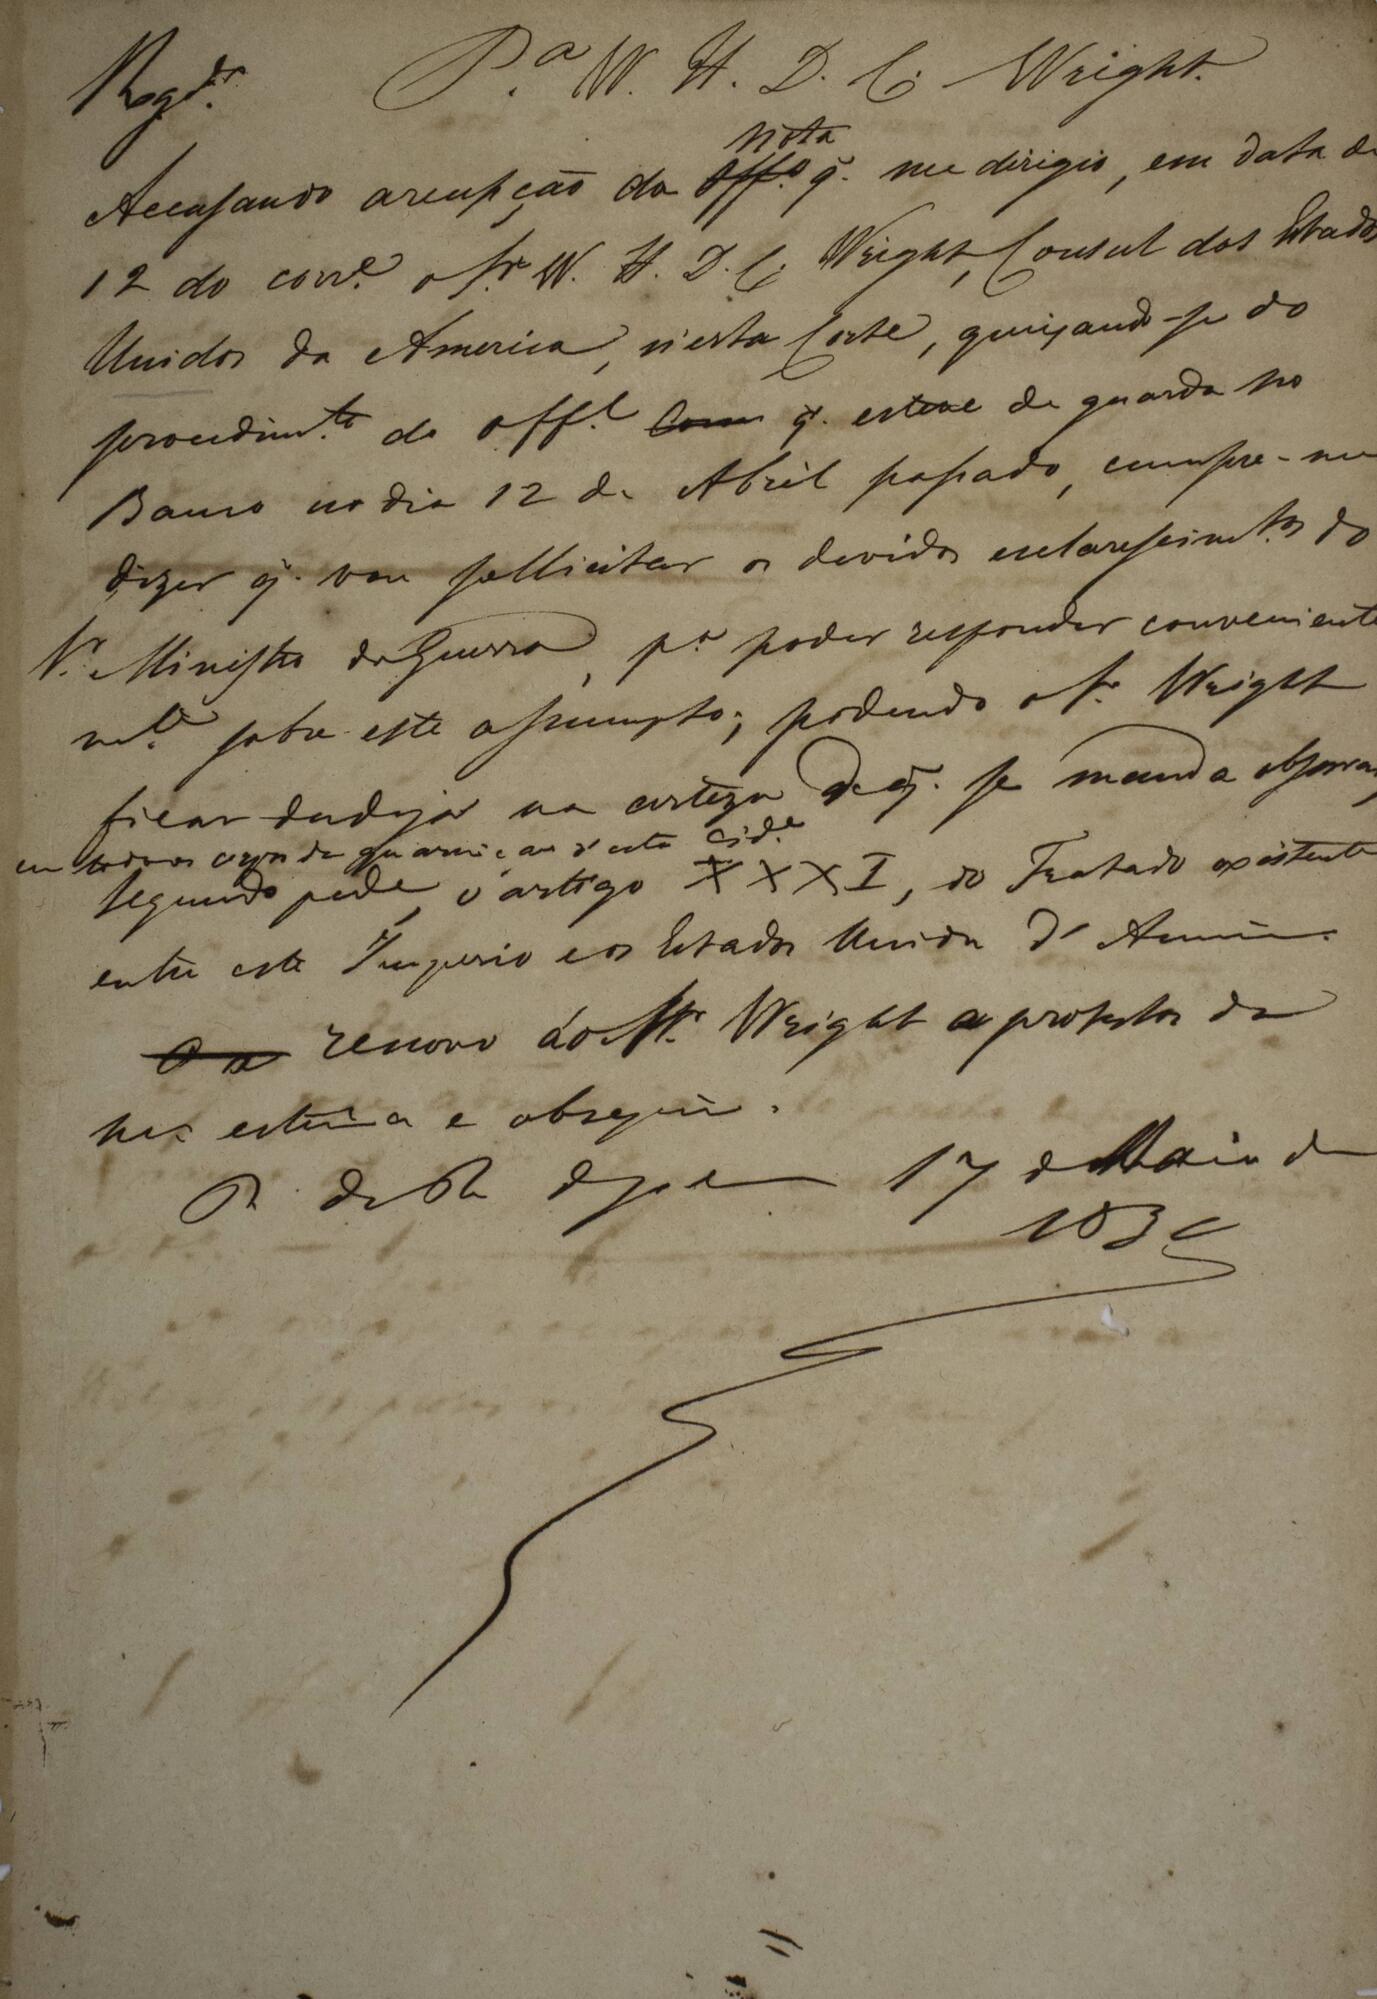 Regdo.
Pa. W. H. D. C. Wright.
nota
Accusando a recepção da Offo. q. me dirigio, em data de
12 do corre. o Sr. W. H. D. C. Wright, Consul dos Estados
Unidos da America, n'esta Corte, queixando-se do
procedimto. do offl. com q. esteve de guarda no
Banco no dia 12 de Abril passado, cumpre-me
dizer q. vou sollicitar os devidos esclarescimtos. do
Sr. Ministro da Guerra, pa. poder responder conveniente
mte. sobre este assumpto; podendo o Sr. Wright
ficar na certeza de q. se manda observar,
em todos os da guarnição d'esta Cide.
segundo pede, o artigo XXXI, do Tratado existente
entre este Imperio e os Estados Unidos d'America.
renovo ao Sr. Wright os protestos de
estima e obsequio.
17 de Maio de
183